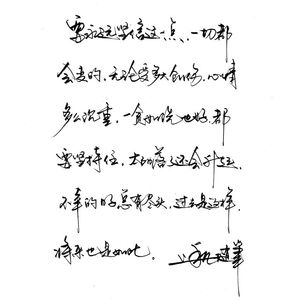 要永远坚信这一点、一切都
会变的,无论受多大创伤,心情
多么沉重,一贫如洗也好,都
要坚持住,太阳落了还会升起,
不幸的日子总有尽头,过去是这样.
将来也是如此。